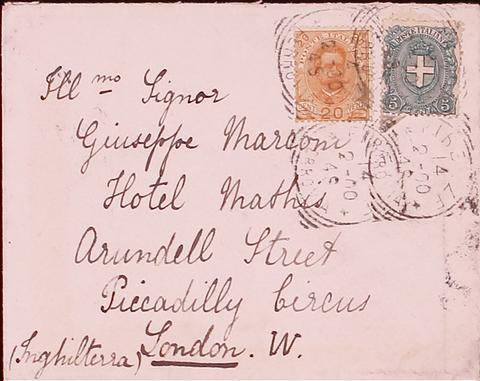 20 POSTE ITALIANE
20
POSTE ITALIANE
5 5
2-00
Ill mo Signor
Giuseppe Marconi
Hotel Mathis
Arundell Street
Piccadilly Circus
(Inghilterra) London. W.